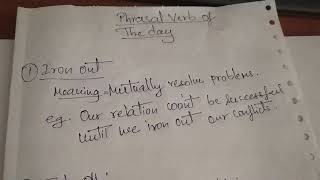 Phrasal Verb of
The day
① Iron out
Meaning = Mutually resolve problems.
eg. Our relation won't be successful
until we iron out our conflicts.